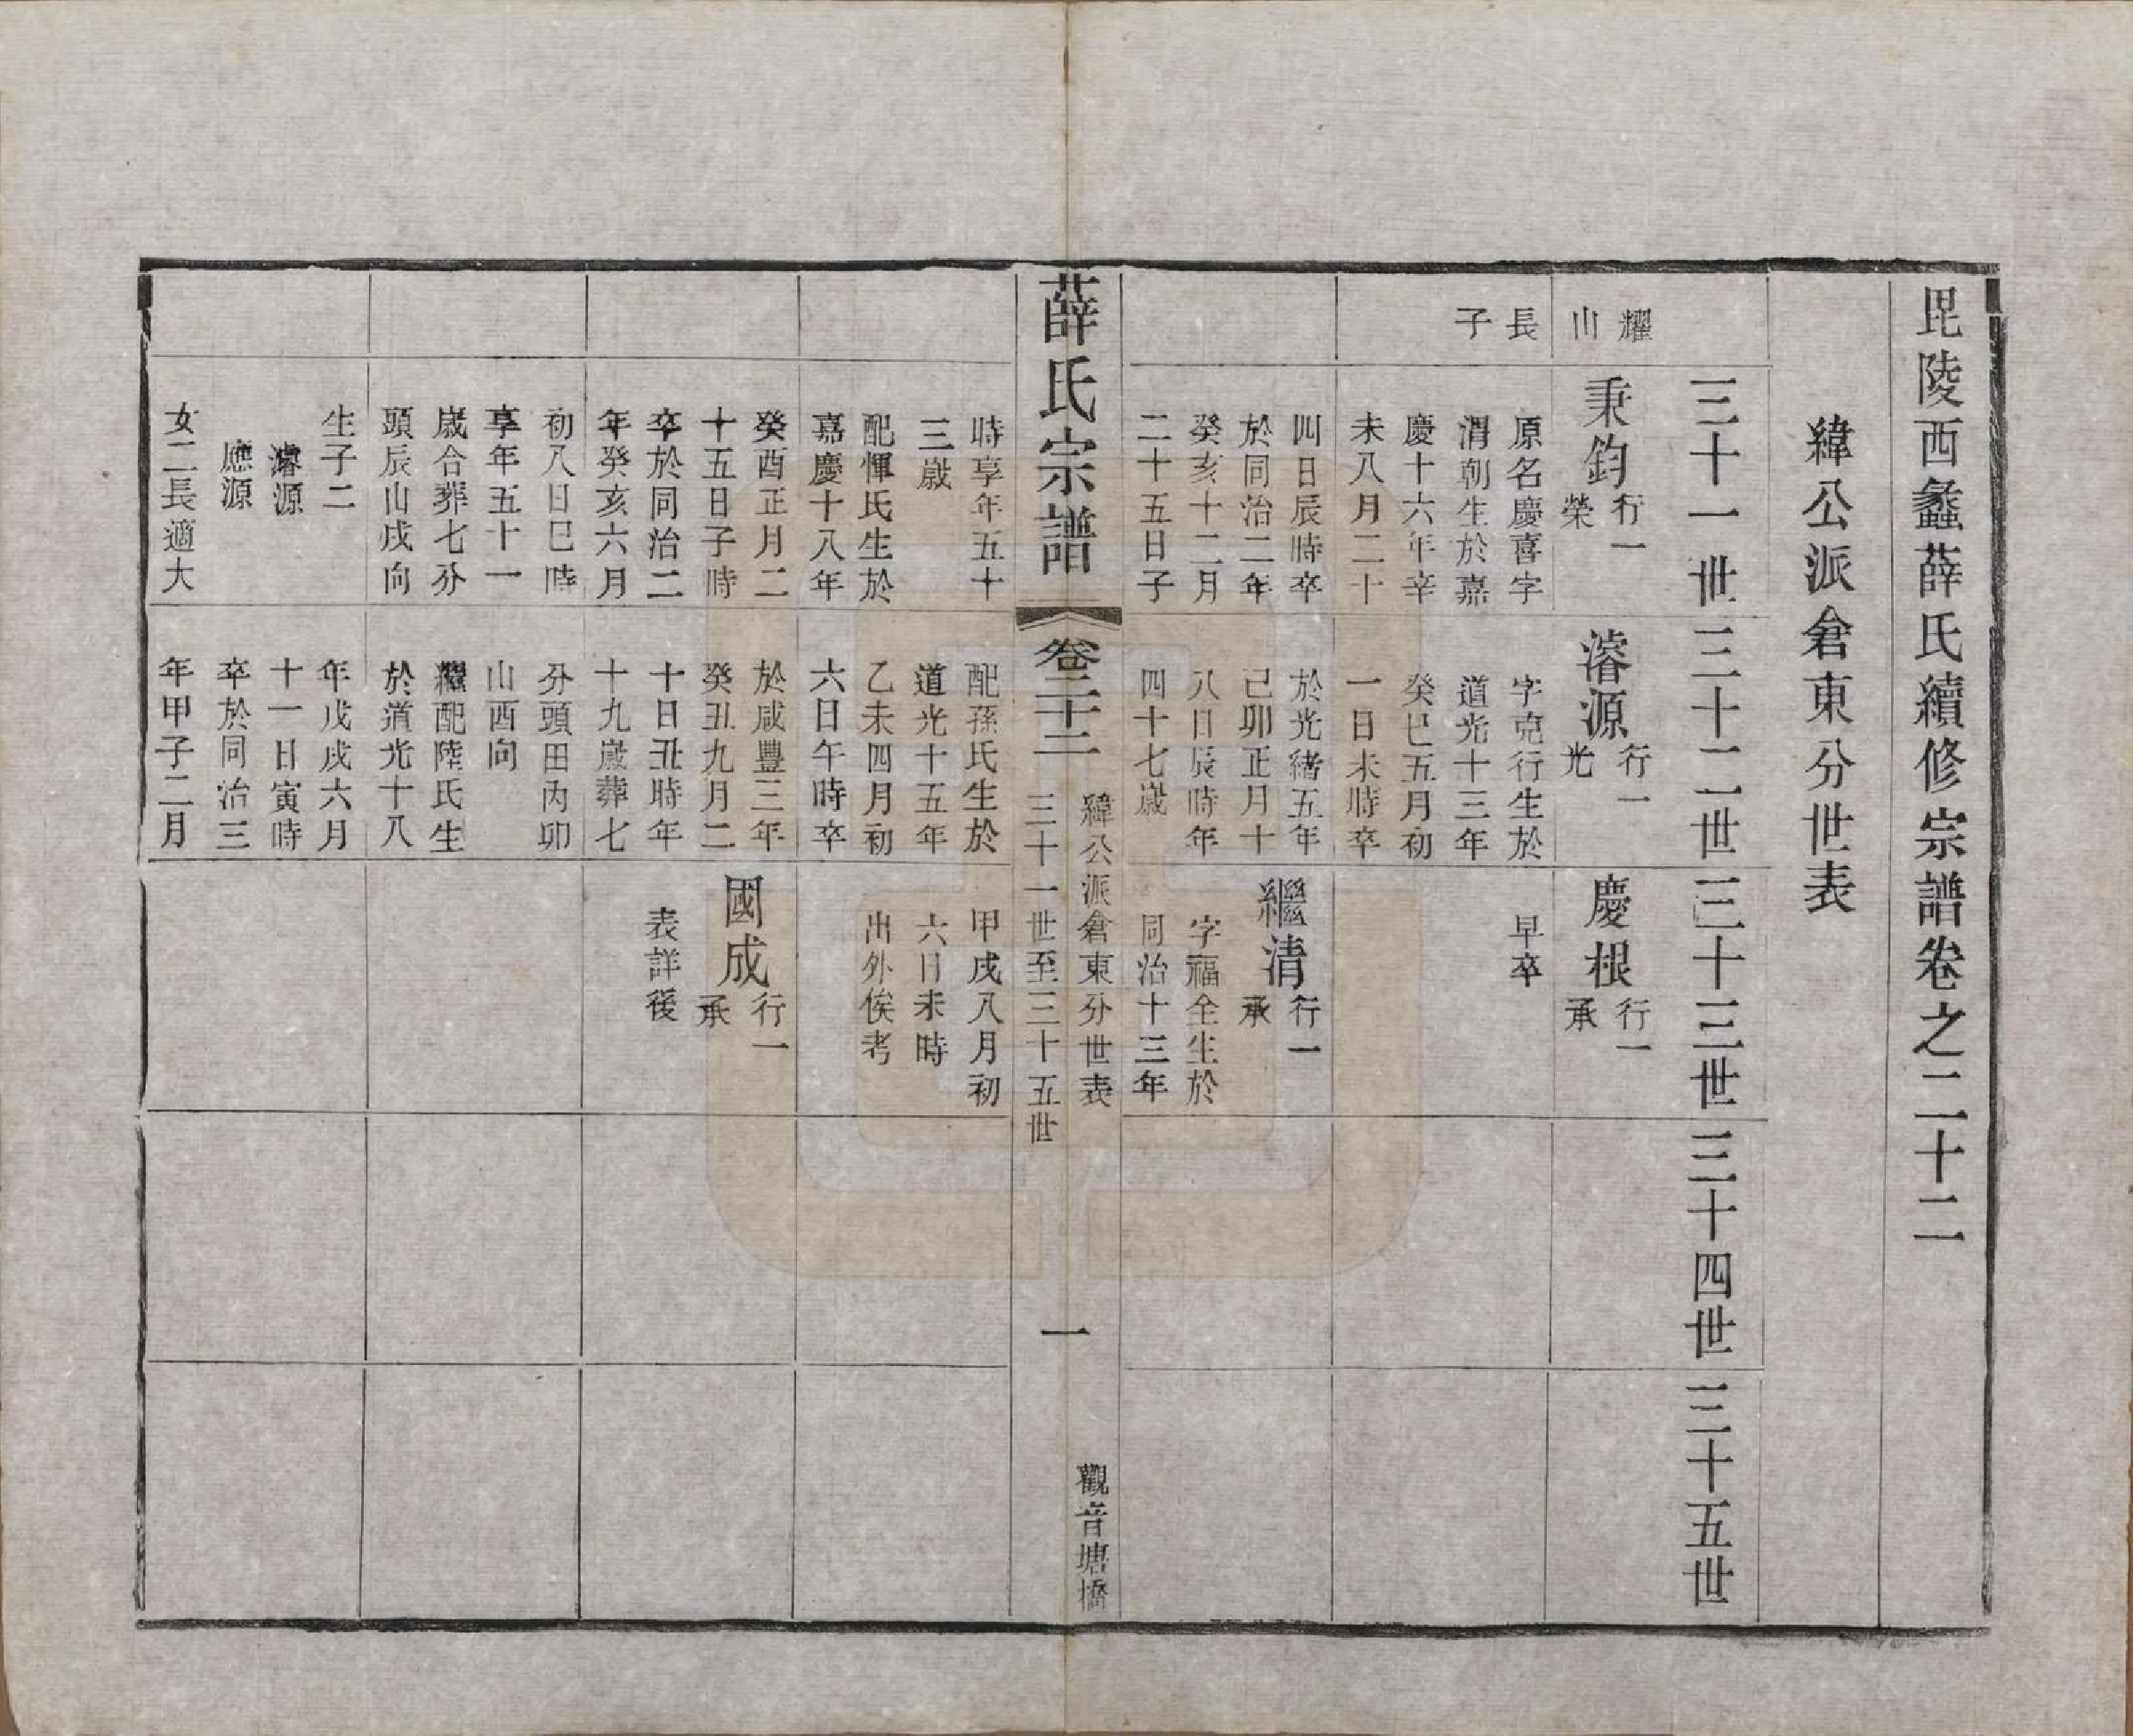 毘陵西蠡薛氏續修宗譜卷之二十二
緯公派倉東分世表
三十一世
三十二世
三十三世
三十四世
三十五世
耀山
長子
秉鈞
行一
榮
原名慶喜字
渭朝生於嘉
慶十六年辛
未八月二十
四日辰時卒
於同治二年
癸亥十二月
二十五日子
濬源
行一
光
字克行生於
道光十三年
癸巳五月初
一日未時卒
於光緒五年
己卯正月十
八日辰時年
四十七歲
慶根
行一
承
早卒
繼清
行一
承
字福全生於
同治十三年
薛氏宗譜
卷二十二
緯公派倉東分世表
三十一世至三十五世
一
觀音塘橋
時享年五十
三歲
配惲氏生於
嘉慶十八年
癸酉正月二
十五日子時
卒於同治二
年癸亥六月
初八日巳時
享年五十一
歲合葬七分
頭辰山戌向
生子二
濬源
應源
女二長適大
配孫氏生於
道光十五年
乙未四月初
六日午時卒
於咸豐三年
癸丑九月二
十日丑時年
十九歲葬七
分頭田內卯
山酉向
繼配陸氏生
於道光十八
年戊戌六月
十一日寅時
卒於同治三
年甲子二月
甲戌八月初
六日未時
出外俟考
國成
行一
承
表詳後